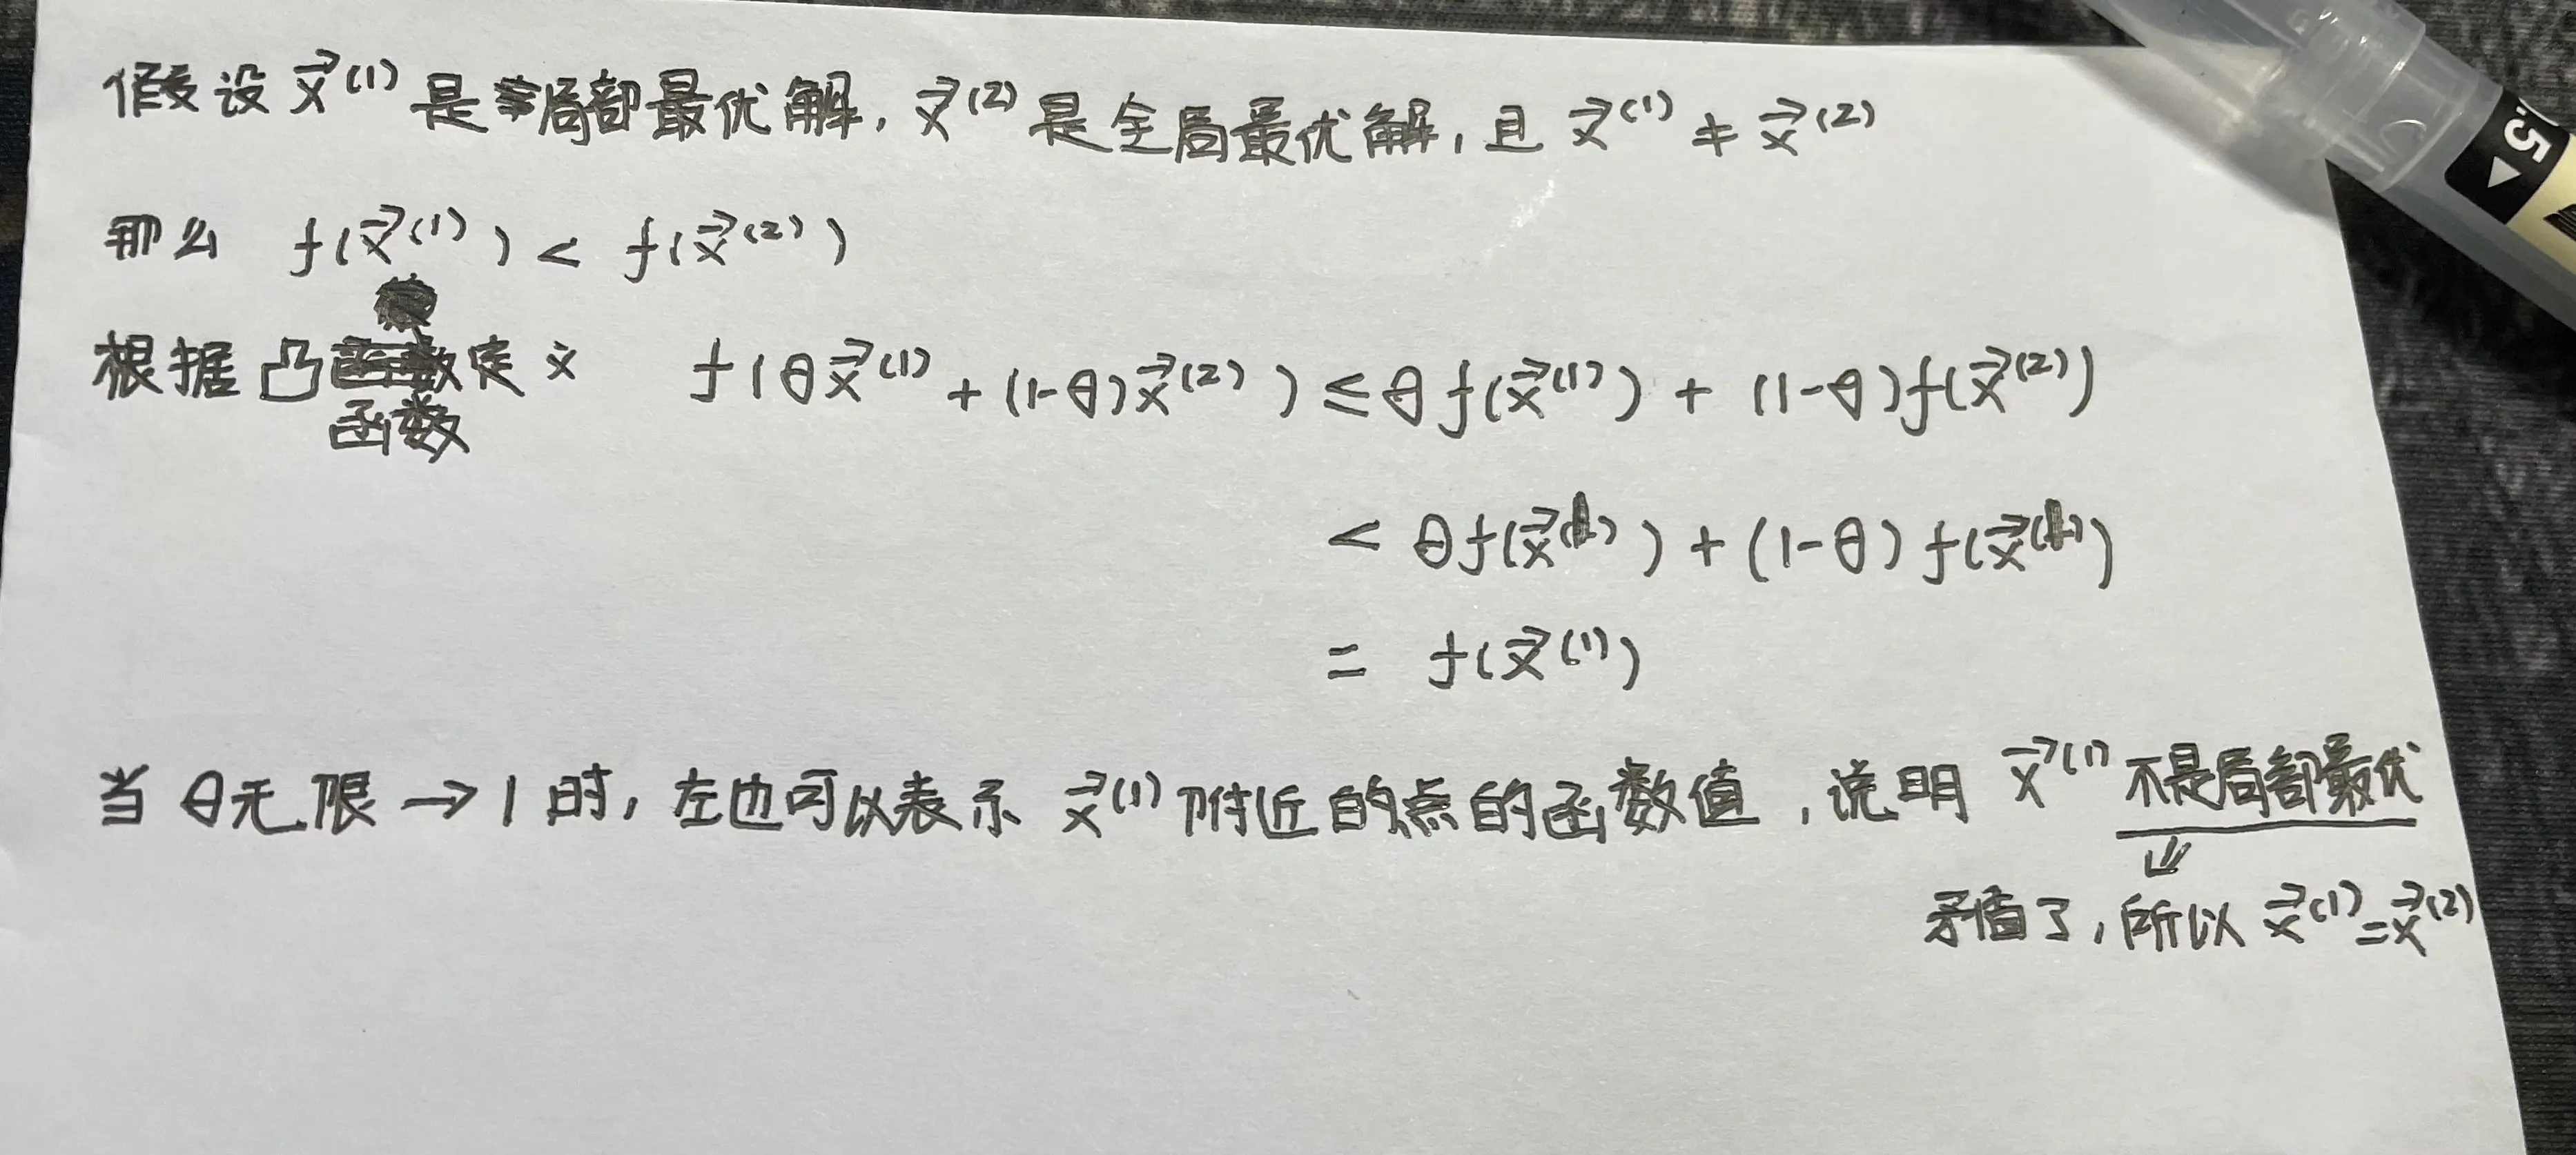 假设 x⃗⁽¹⁾ 是局部最优解, x⃗⁽²⁾ 是全局最优解, 且 x⃗⁽¹⁾ ≠ x⃗⁽²⁾
那么 f(x⃗⁽¹⁾) < f(x⃗⁽²⁾)
根据凸函数定义 f(θx⃗⁽¹⁾ + (1-θ)x⃗⁽²⁾) ≤ θf(x⃗⁽¹⁾) + (1-θ)f(x⃗⁽²⁾)
< θf(x⃗⁽¹⁾) + (1-θ)f(x⃗⁽¹⁾)
= f(x⃗⁽¹⁾)
当 θ无限→1时, 左也可以表示 x⃗⁽¹⁾附近的点的函数值, 说明 x⃗⁽¹⁾ 不是局部最优
⇓
矛盾了, 所以 x⃗⁽¹⁾=x⃗⁽²⁾
.5